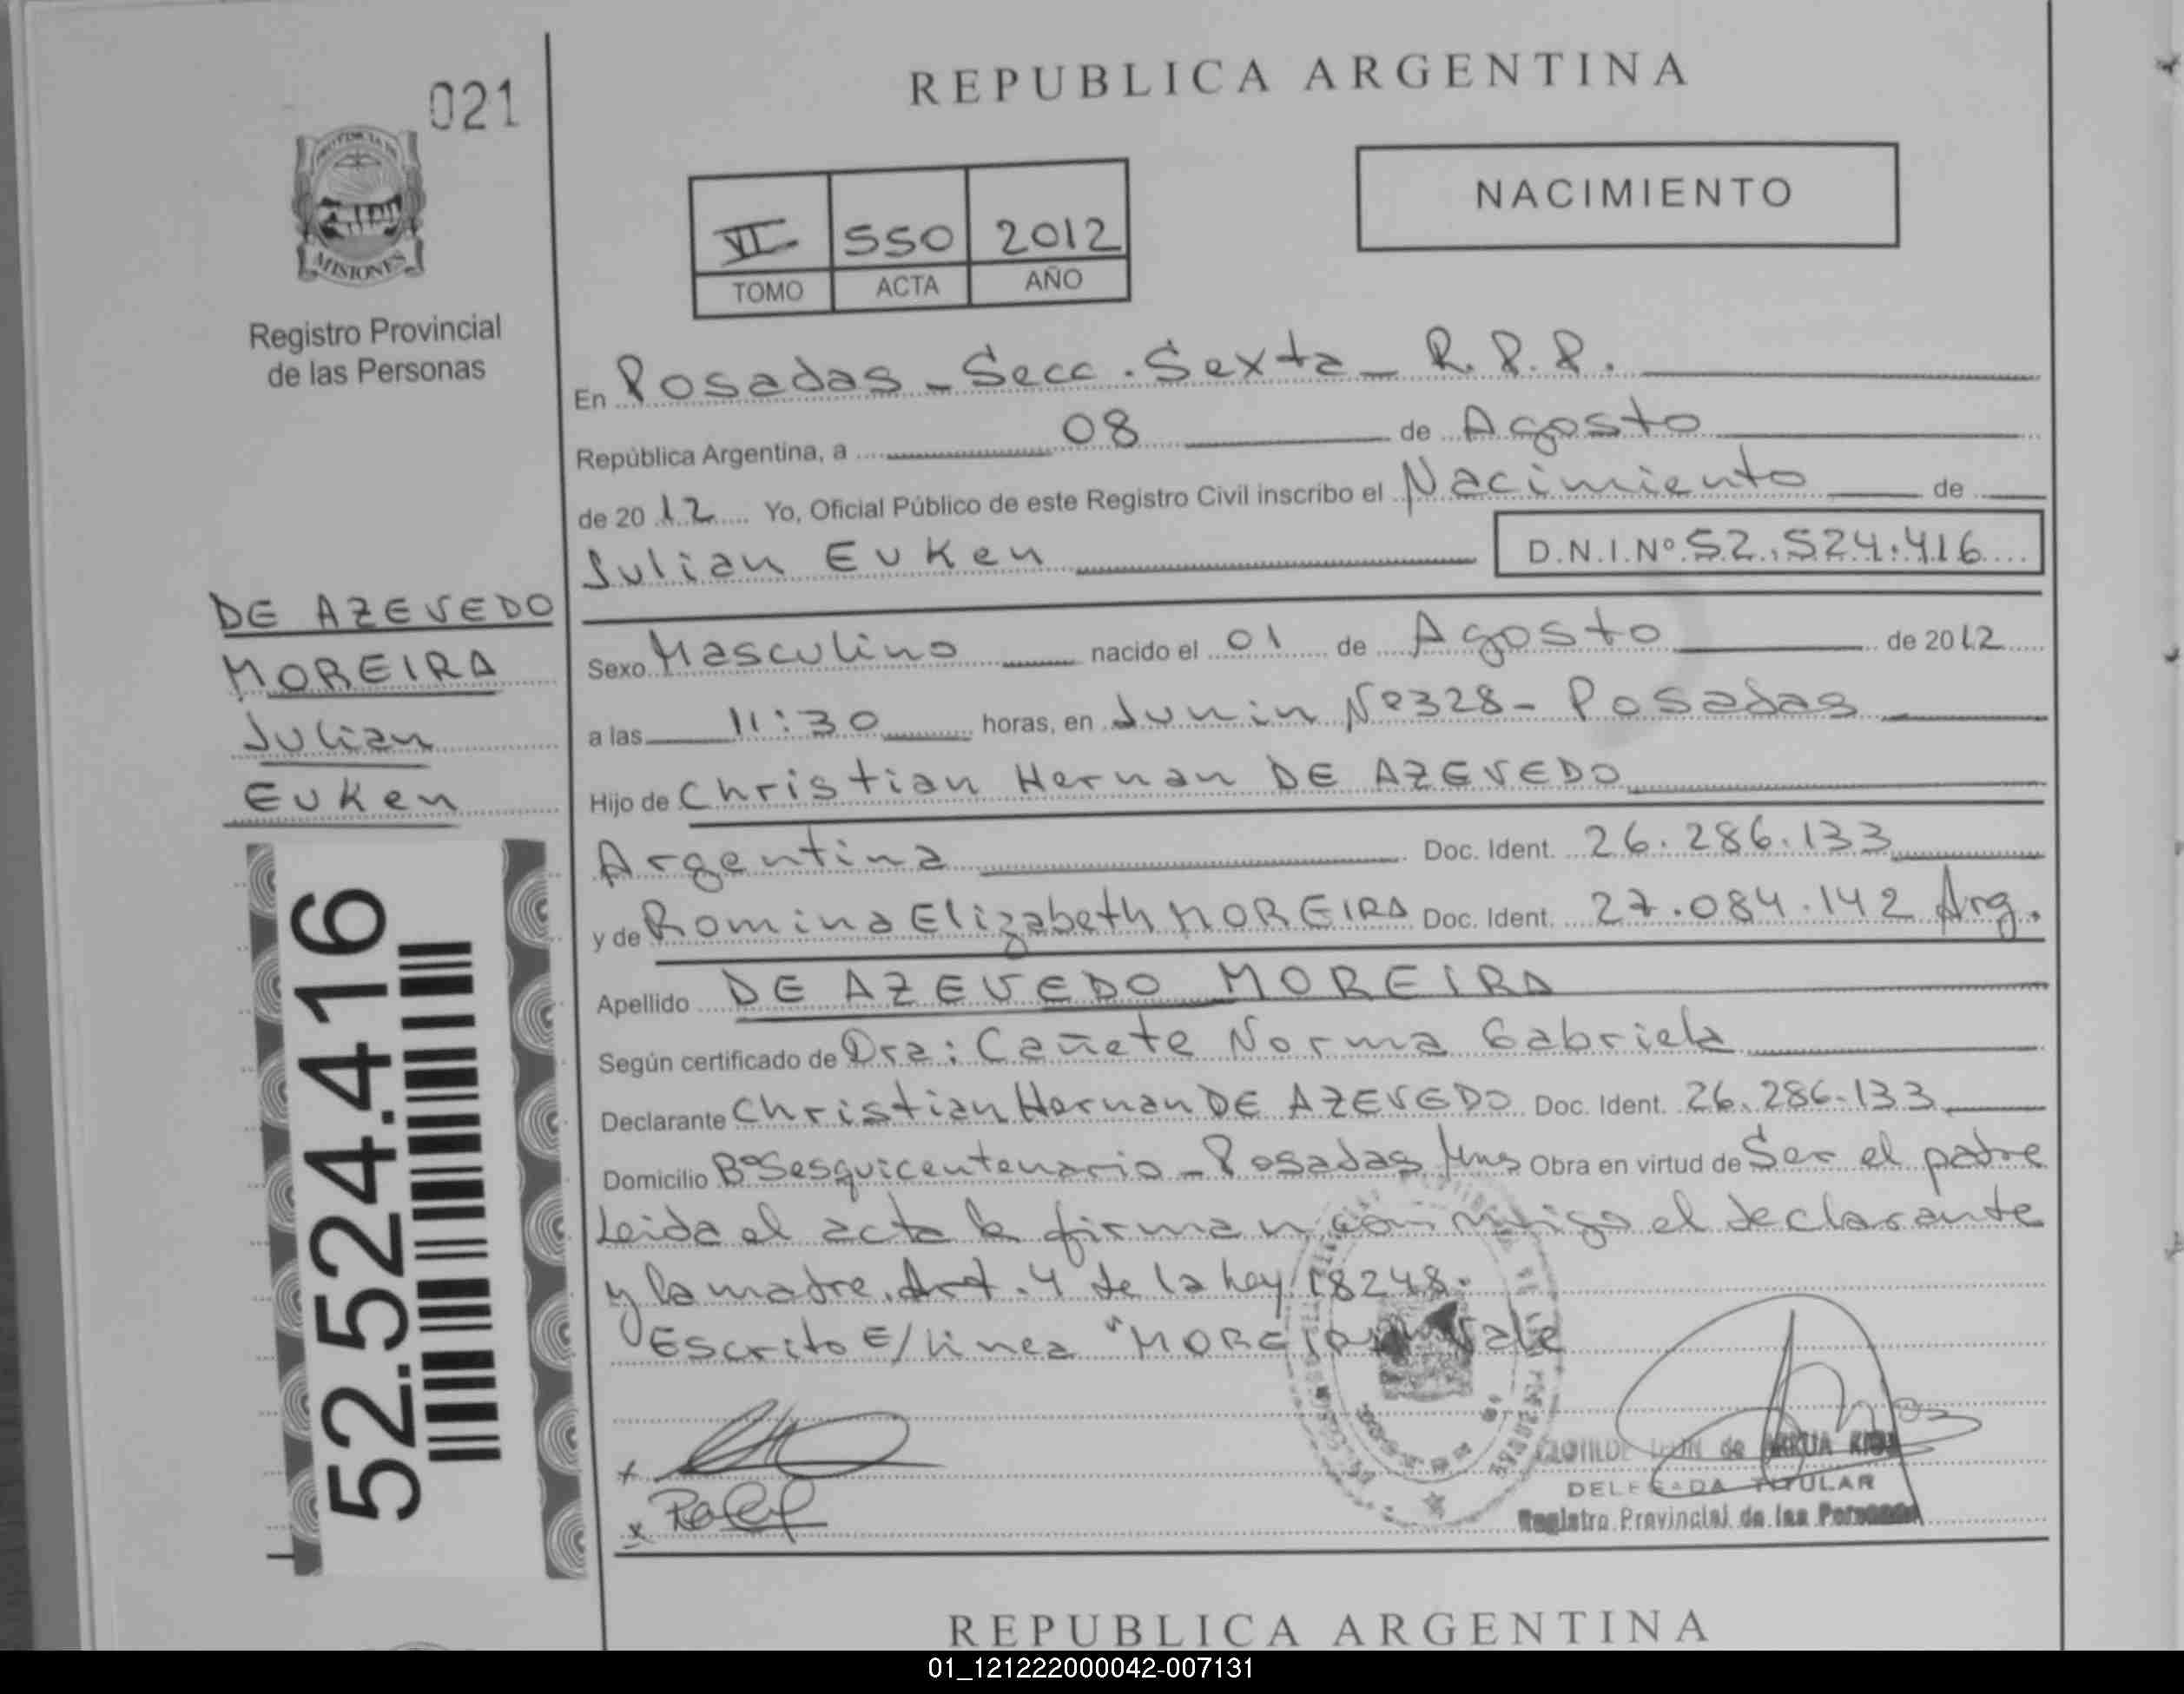 REPUBLICA ARGENTINA
021
PROVINCIA DE
MISIONES
Registro Provincial
de las Personas
NACIMIENTO
VI 550 2012
TOMO ACTA AÑO
En Posadas - Secc. Sexta - R.P.P.
República Argentina, a 08 de Agosto
de 2012 Yo, Oficial Público de este Registro Civil inscribo el Nacimiento de
Julian Euken D.N.I.Nº 52.524.416
DE AZEVEDO
MOREIRA
Julian
Euken
Sexo Masculino nacido el 01 de Agosto de 2012
a las 11:30 horas, en Junin Nº328 - Posadas
Hijo de Christian Hernan DE AZEVEDO
Argentina Doc. Ident. 26.286.133
y de Romina Elizabeth MOREIRA Doc. Ident. 27.084.142 Arg.
Apellido DE AZEVEDO MOREIRA
Según certificado de Dra: Cañete Norma Gabriela
Declarante Christian Hernan DE AZEVEDO Doc. Ident. 26.286.133
Domicilio Bº Sesquicentenario - Posadas Mnes Obra en virtud de Ser el padre
Leida el acta la firman conmigo el declarante
y la madre. Art. 4 de la Ley 18248.
Escrito E/linea "MOREIRA" Vale
52.524.416
CLOTILDE de
DELEGADA TITULAR
Registro Provincial de las Personas
REPUBLICA ARGENTINA
01_121222000042-007131